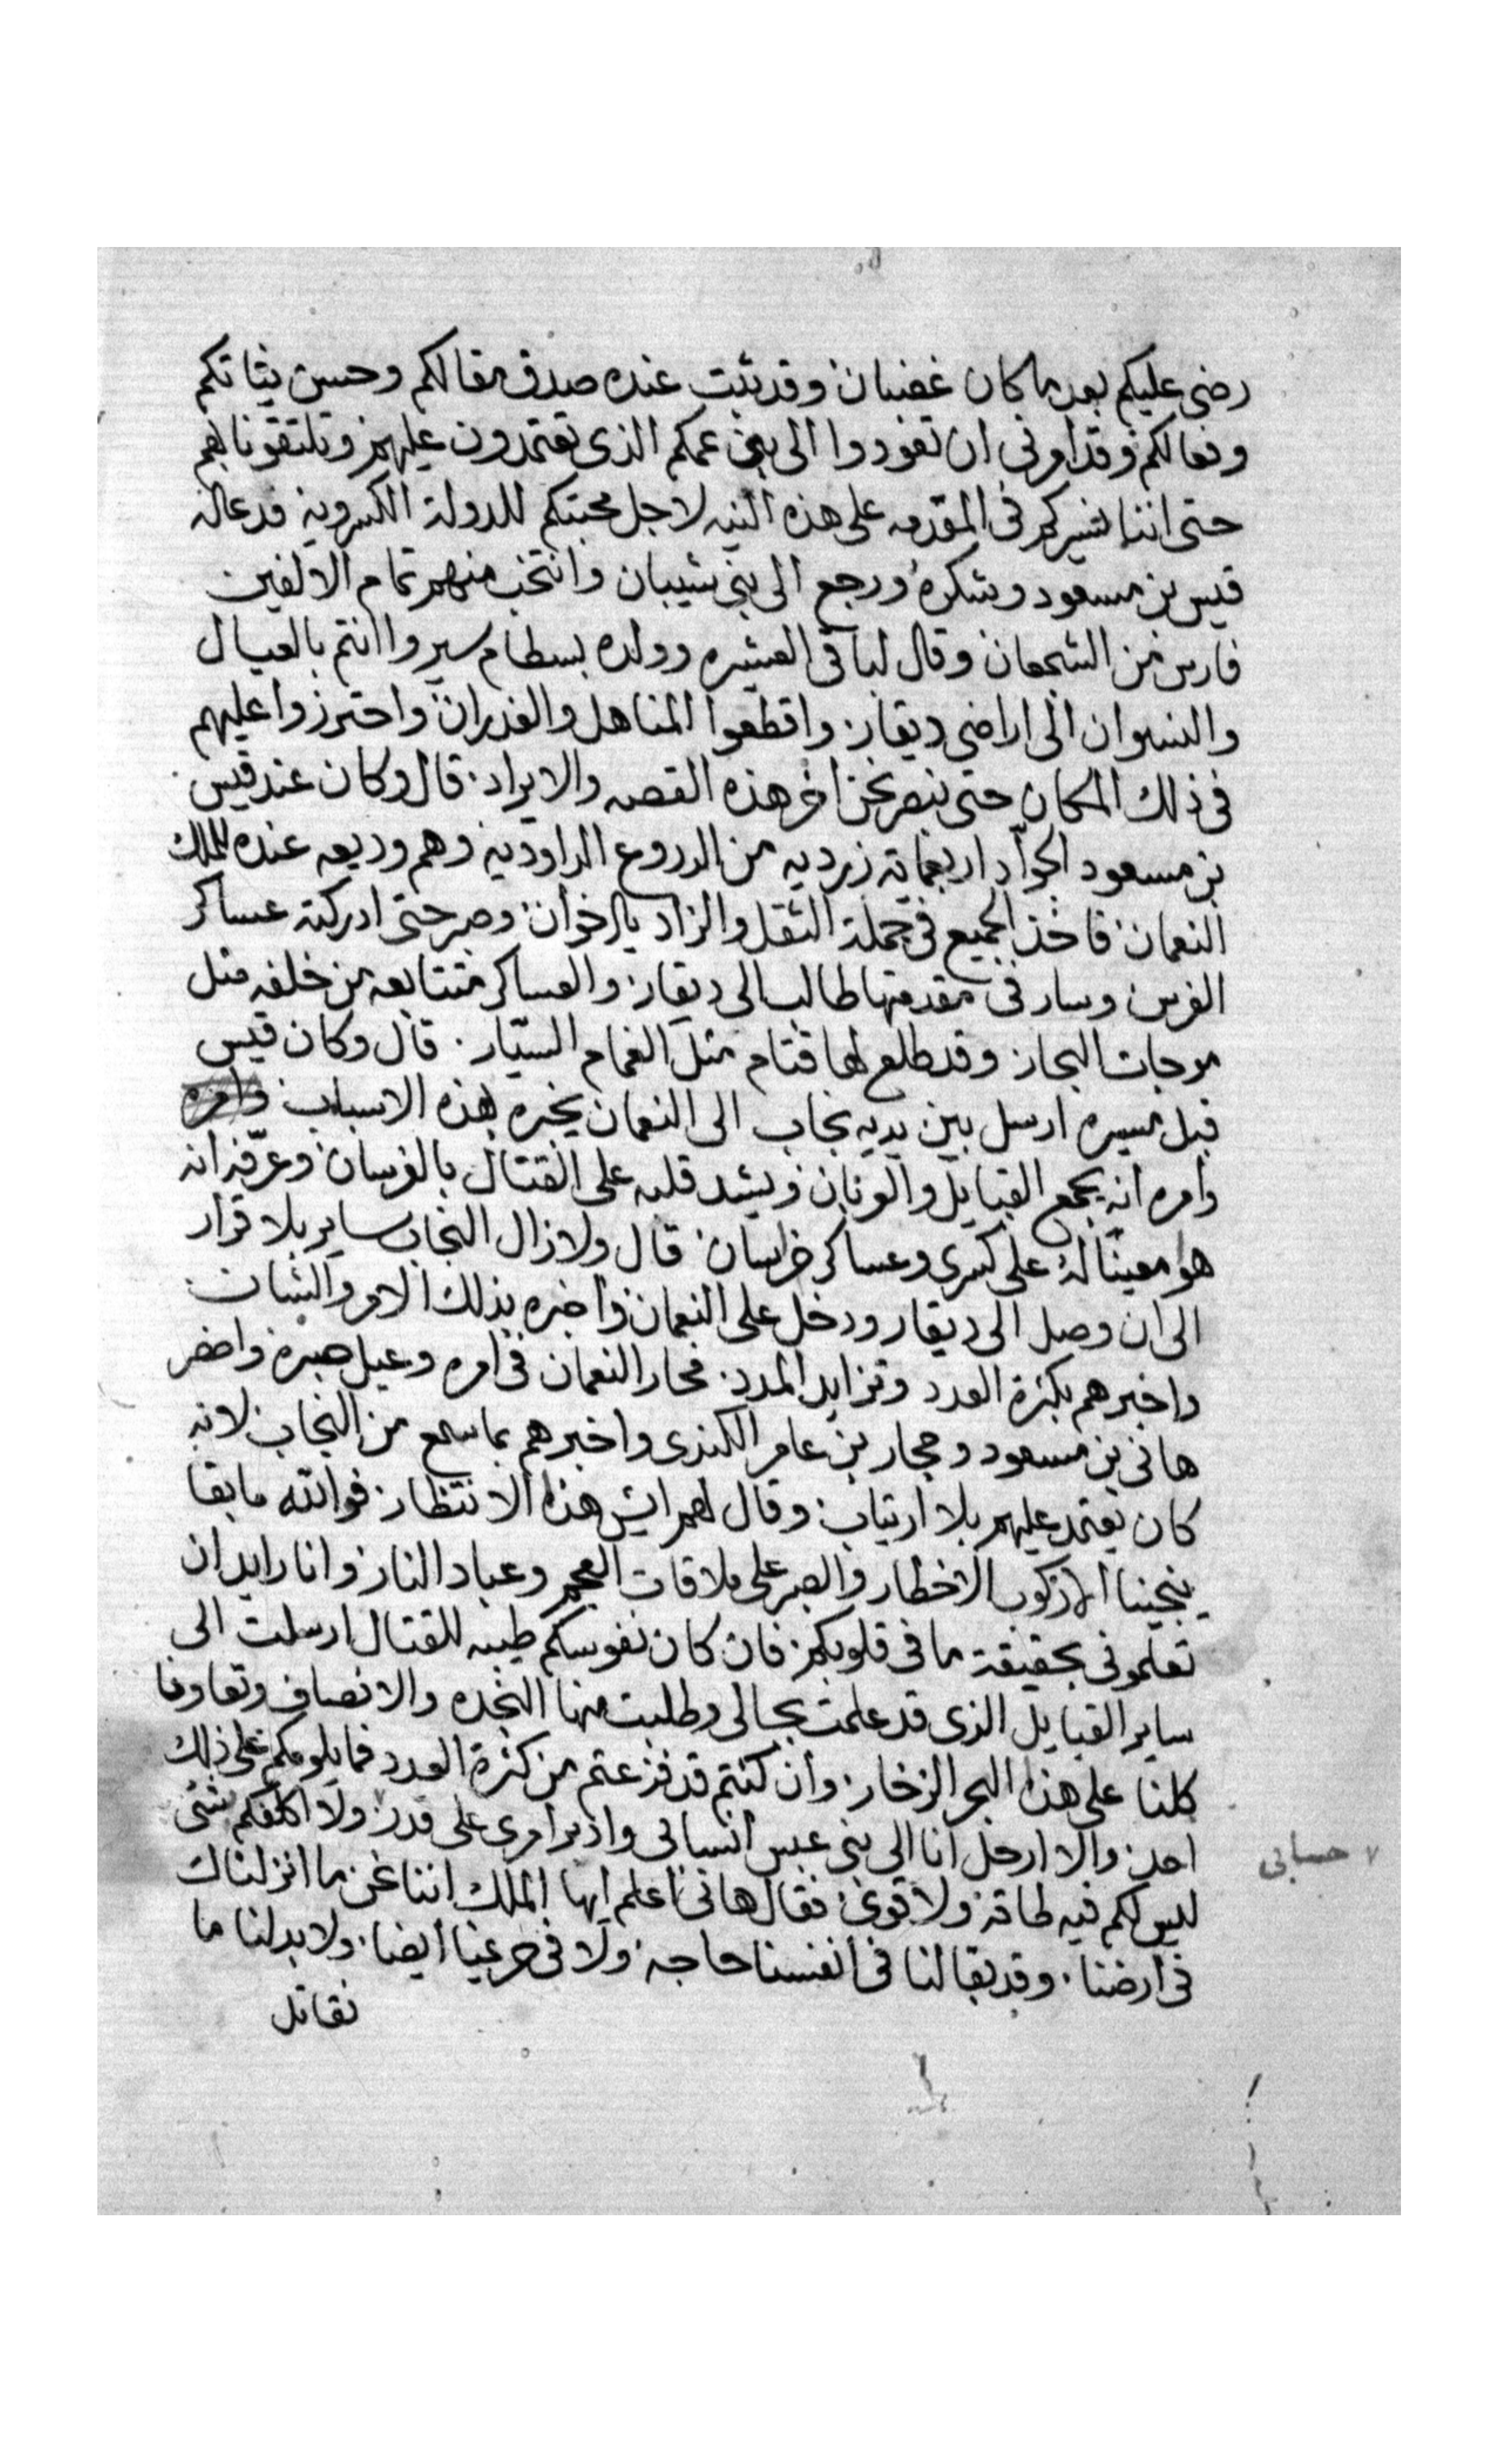 رضى عليكم بعد ما كان غضبان وقد ثبت عنده صدق مقالكم وحسن نيتاتكم
وفعالكم وقد امرنى ان تعودوا الى بنى عمكم الذى تعتمدون عليهم وتلتقونا بهم
حتى اننا نسيركم فى المقدمه على هذه النيه لاجل محبتكم للدولة الكسرويه فدعا له
قيس بن مسعود وشكره ورجع الى بنى شيبان وانتخب منهم تمام الالفين
فارس من الشجعان وقال لباقى العشيره وولده بسطام سيروا انتم بالعيال
والنسوان الى اراضى ديقار واقطعوا المناهل والغدران واحترزوا عليهم
فى ذلك المكان حتى نبصر نحن اخر هذه القصه والايراد قال وكان عند قيس
بن مسعود الجواد اربعماية زرديه من الدروع الداوديه وهم وديعه عنده للملك
النعمان فاخذ الجميع فى جملة الثقل والزاد وصبر حتى ادركته عساكر
الفرس وسار فى مقدمتها طالب الى ديقار والعساكر متتابعه من خلفه مثل
موجات البحار وقد طلع لها قتام مثل الغمام السيّار قال وكان قيس
قبل مسيره ارسل بين يديه نجاب الى النعمان يخبره بهذه الاسباب وامره
وامره انه يجمع القبايل والعربان ويشد قلبه على القتال بالفرسان وعرّفه انه
هو معينًا له على كسرى وعساكر خراسان قال ولا زال النجاب ساير بلا قرار
الى ان وصل الى ديقار ودخل على النعمان واخبره بذلك الامر والشان
واخبرهم بكثرة العدد وتزايد المدد فحار النعمان فى امره وعيل صبره واحضر
هانى بن مسعود وحجار بن عامر الكندى واخبرهم بما سمع من النجاب لانه
كان يعتمد عليهم بلا ارتياب وقال لهم ايش هذا الانتظار فوالله ما بقا
ينجينا الا ركوب الاخطار والصبر على ملاقات العجم وعباد النار وانا رايد ان
تعلمونى بحقيقة ما فى قلوبكم فان كان نفوسكم طيبه للقتال ارسلت الى
ساير القبايل الذى قد علمت بحالى وطلبت منها النجده والانصاف وتعاونا
كلنا على هذا البحر الزخار وان كنتم قد فزعتم من كثرة العدد فما يلومكم على ذلك
احد والا ارحل انا الى بنى عبس انسابى وادبر امرى على قدر ولا اكلفكم شئ
ليس لكم فيه طاقة ولا قوى فقال هانى اعلم ايها الملك اننا نحن ما انزلناك
فى ارضنا وقد بقا لنا فى انفسنا حاجه ولا فى حريمنا ايضا ولا بد لنا ما
نقاتل
حسابى